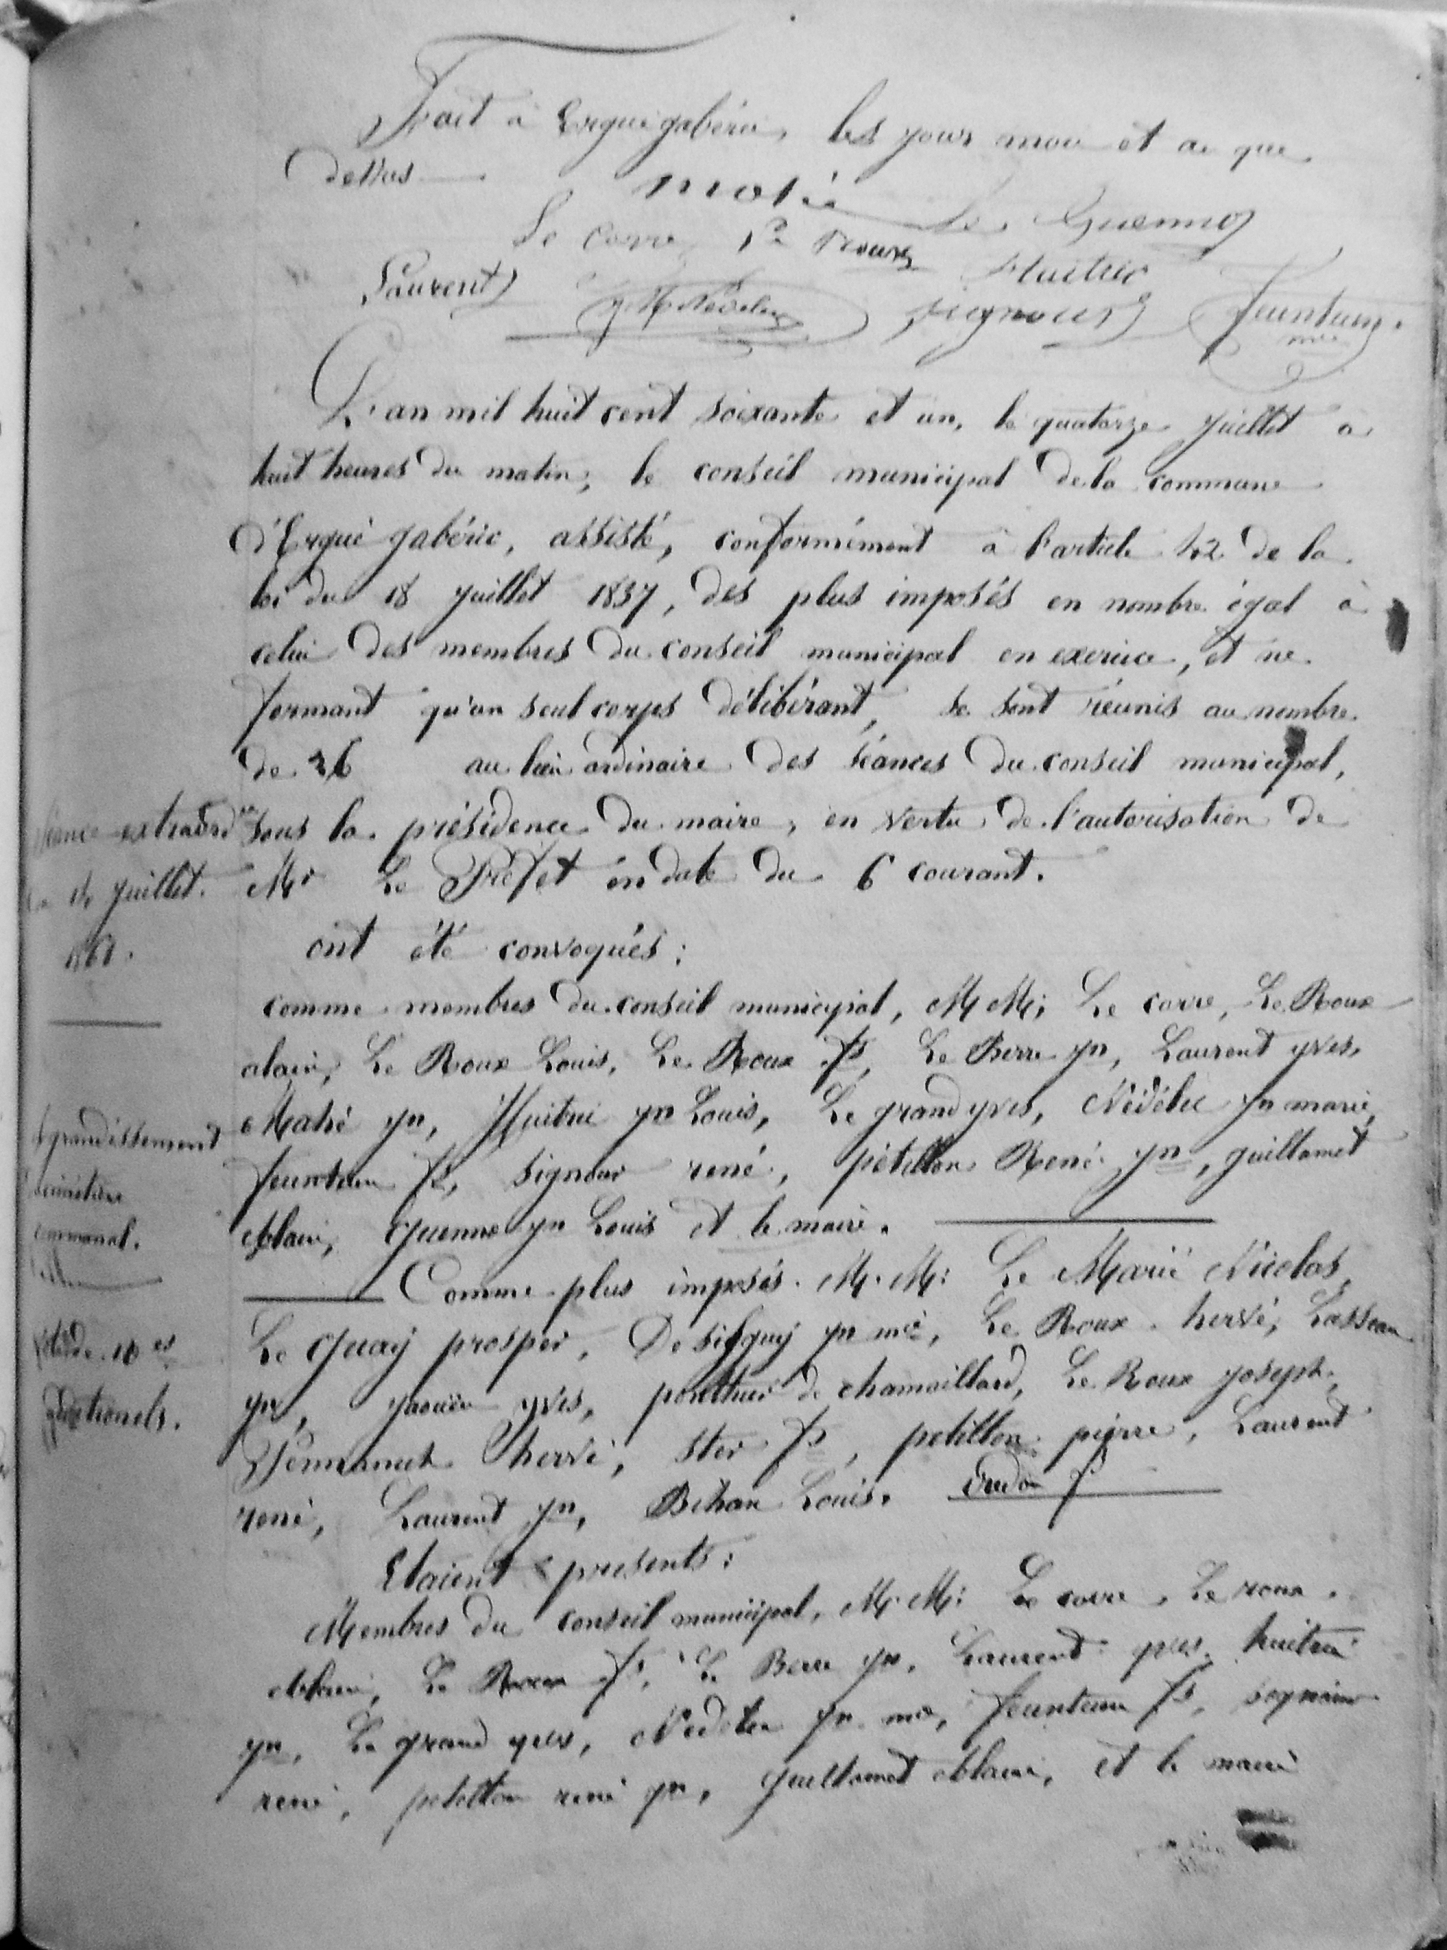 Fait à Ergué gabéric, les jour mois et an que
dessus
Mahé Le Guenno
Le Corre Le Roux Huitric
Laurent J M Nédelec Signour Feunteun
mre
L'an mil huit cent soixante et un, le quatorze juillet à
huit heures du matin; le conseil municipal de la commune
d'Ergué gabéric, assisté, conformément à l'article 42 de la
loi du 18 juillet 1837, des plus imposés en nombre égal à
celui des membres du conseil municipal en exercice, et ne
formant qu'un seul corps délibérant, se sont réunis au nombre
de 26 au lieu ordinaire des séances du conseil municipal,
sous la présidence du maire, en vertu de l'autorisation de
Mr Le Préfet en date du 6 courant.
Séance extraordre
du 14 juillet.
1861.
ont été convoqués:
comme membres du conseil municipal, MM; Le corre, Le Roux
alain, Le Roux Louis, Le Roux fs, Le Berre jn, Laurent yves,
Mahé jn, Huitric jn Louis, Le grand yves, Nédélec jn marie,
feunteun fs, signour rené, pétillon René jn, guillamet
Alain, Guenno jn Louis et le maire.
Agrandissement
cimetière
communal.
Comme plus imposés. M.M: Le Marié Nicolas,
Le Guay prosper, De silguy jn mie, Le Roux hervé, Lasseau
jn, jaouën yves, ponthier de chamaillard, Le Roux joseph,
Hervé, Ster fs, petillon pierre, Laurent
rené, Laurent jn, Bihan Louis. Credou f
Vote de 10 es
additionels.
Etaient présents:
Membres du conseil municipal, M.M: Le corre, Le roux
Alain, Le Roux fs, Le Berre jn, Laurent yves, huitric
jn, Le grand yves, Nédélec jn mie, feunteun fs, signour
rené, petillon rené jn, guillamet Alain, et le maire